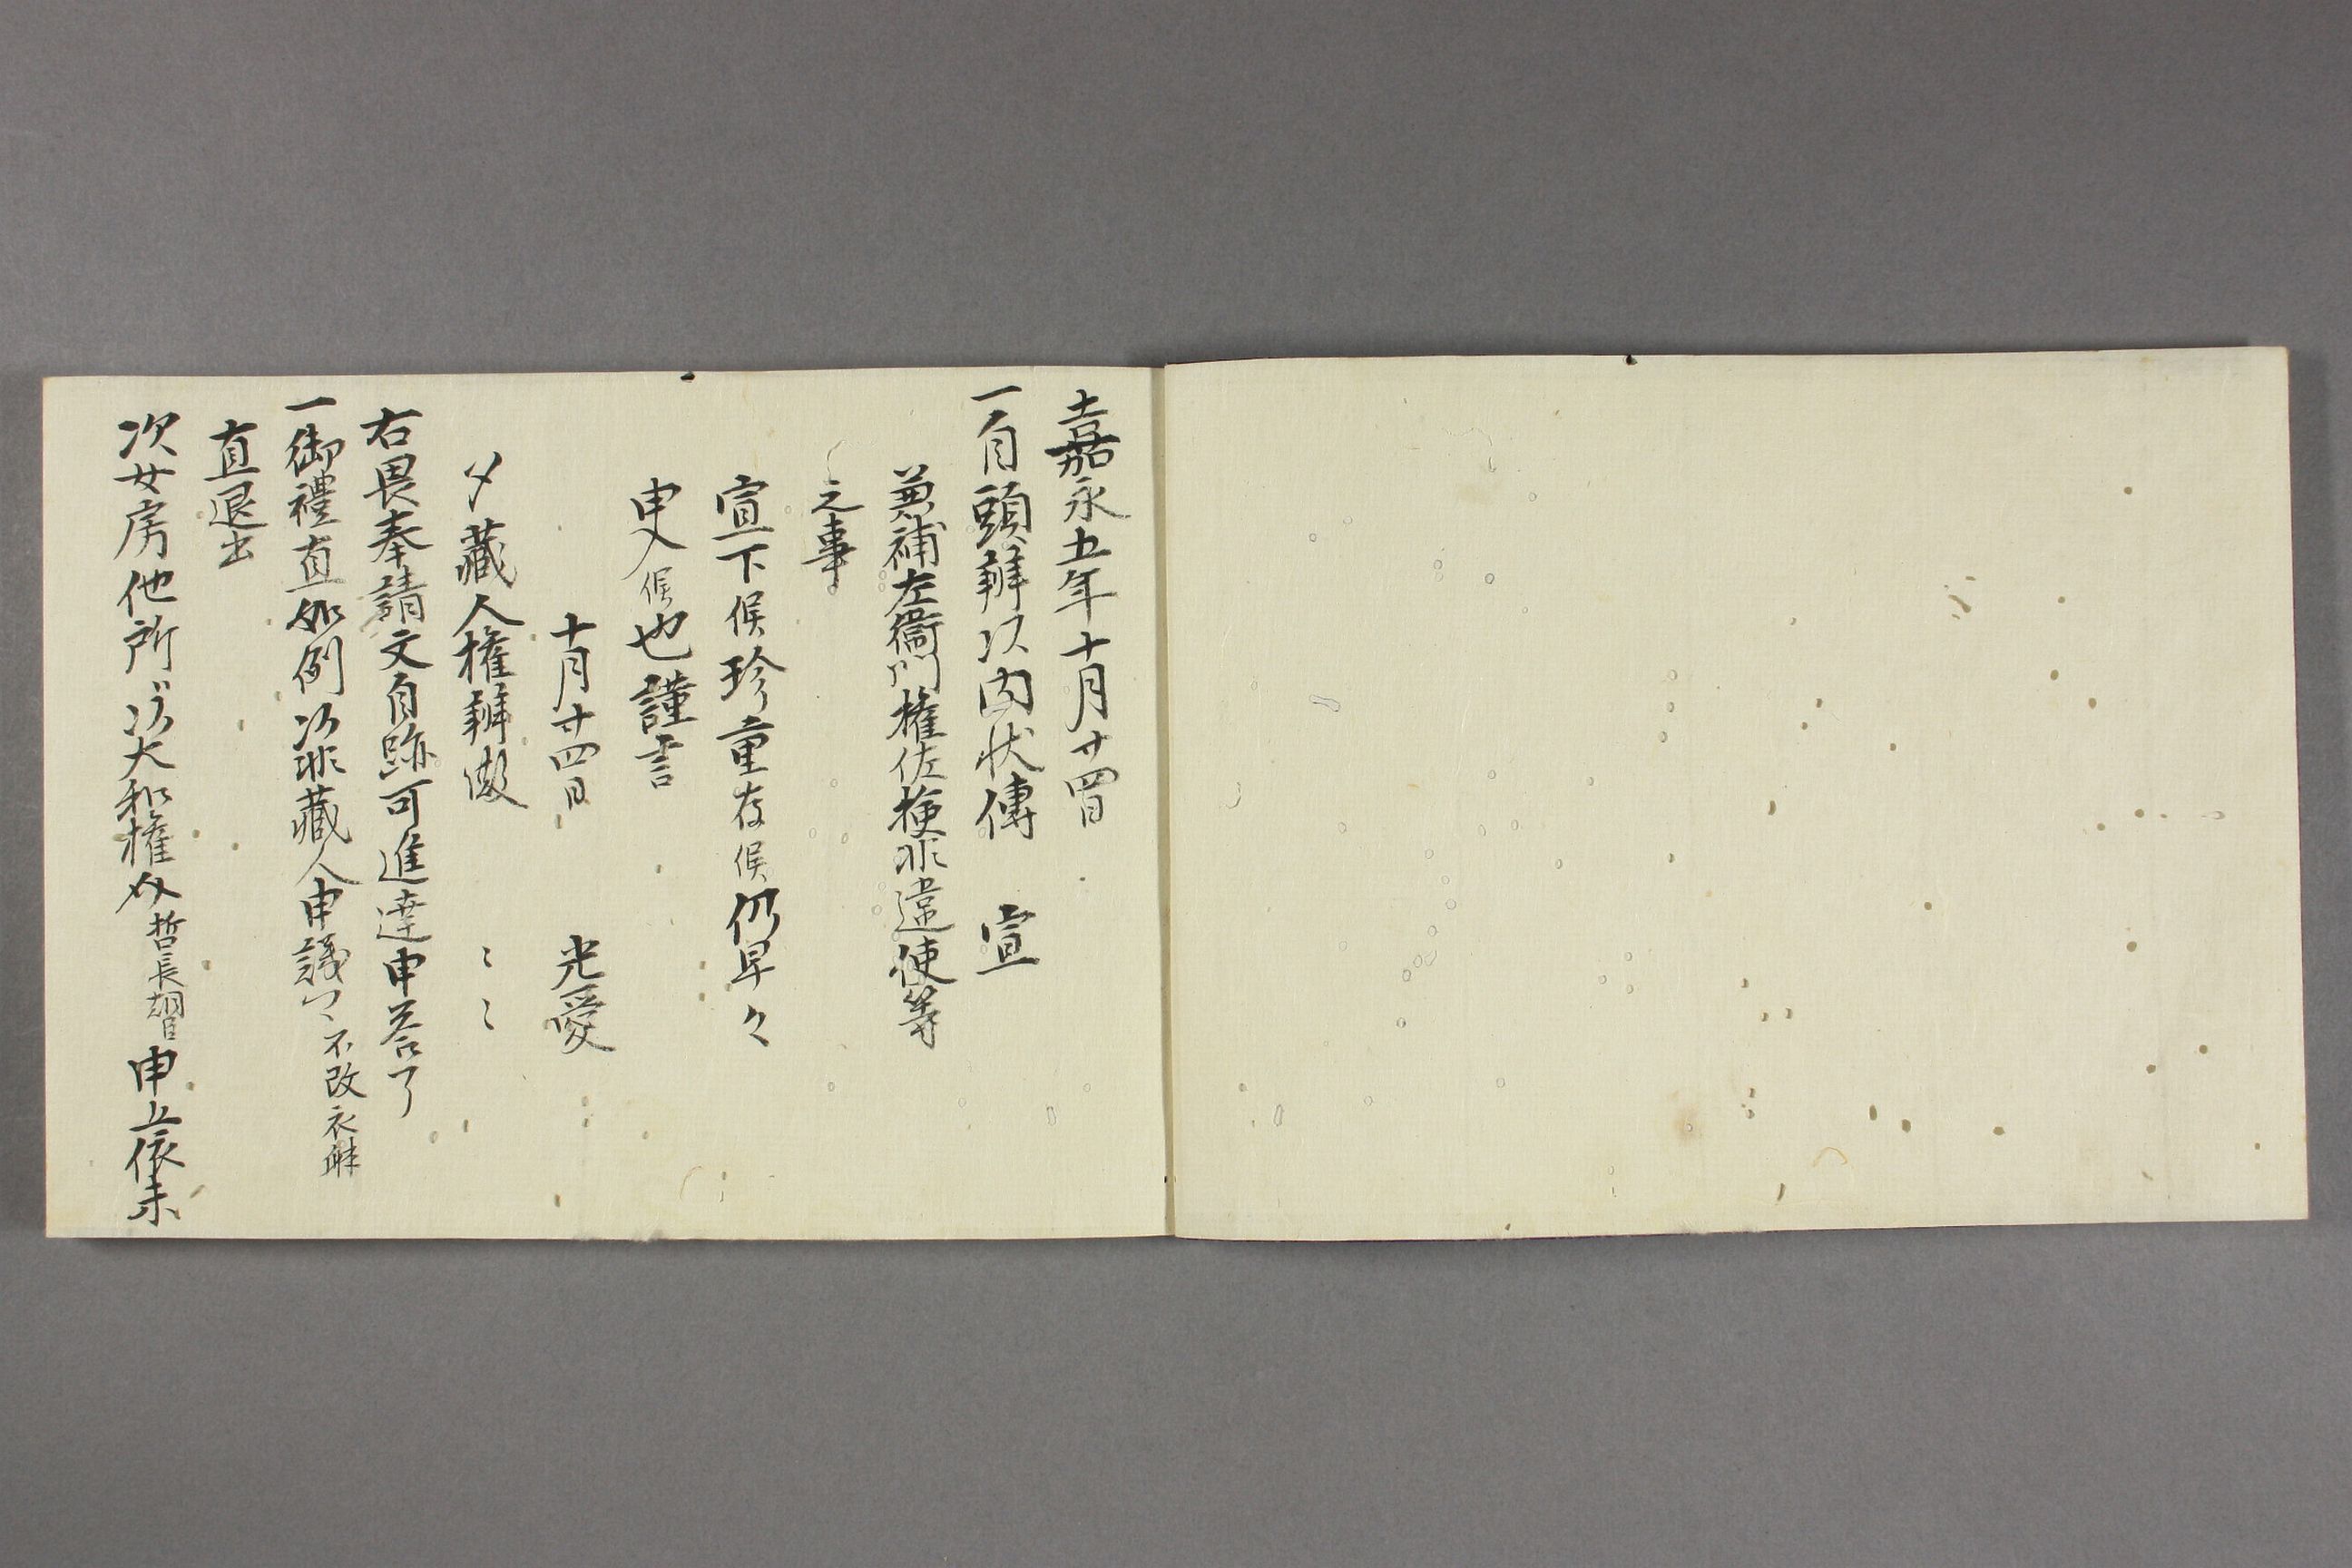 嘉永五年十月廿四日
一自頭辨以内状傳　宣
兼補左衞門權佐検非違使等
之事
宣下候珍重存候仍早々
申入候也謹言
十月廿四日　光愛
藏人權辨殿
右畏奉請文自跡可進達申荅了
一御禮直如例以非藏人申議 不改衣躰
直退出
次女房他所以大和權 哲長朝臣 申上依未